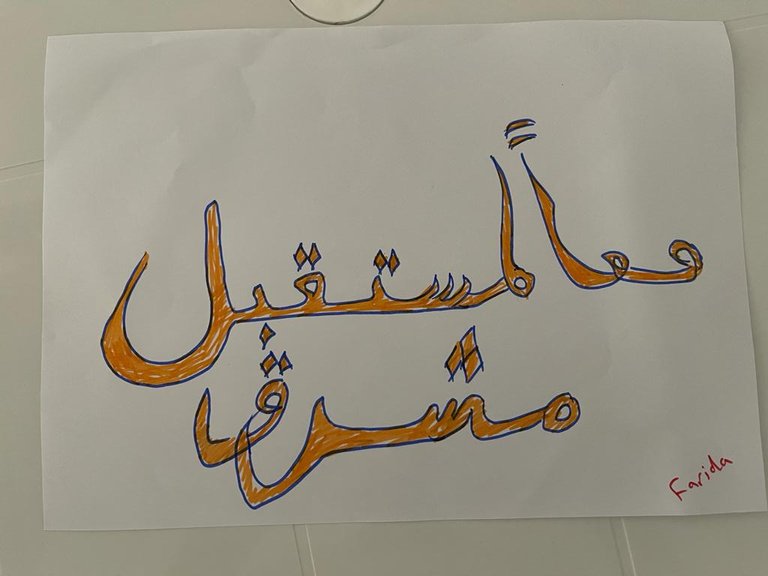 معاً لمستقبل
مشرق
Farida